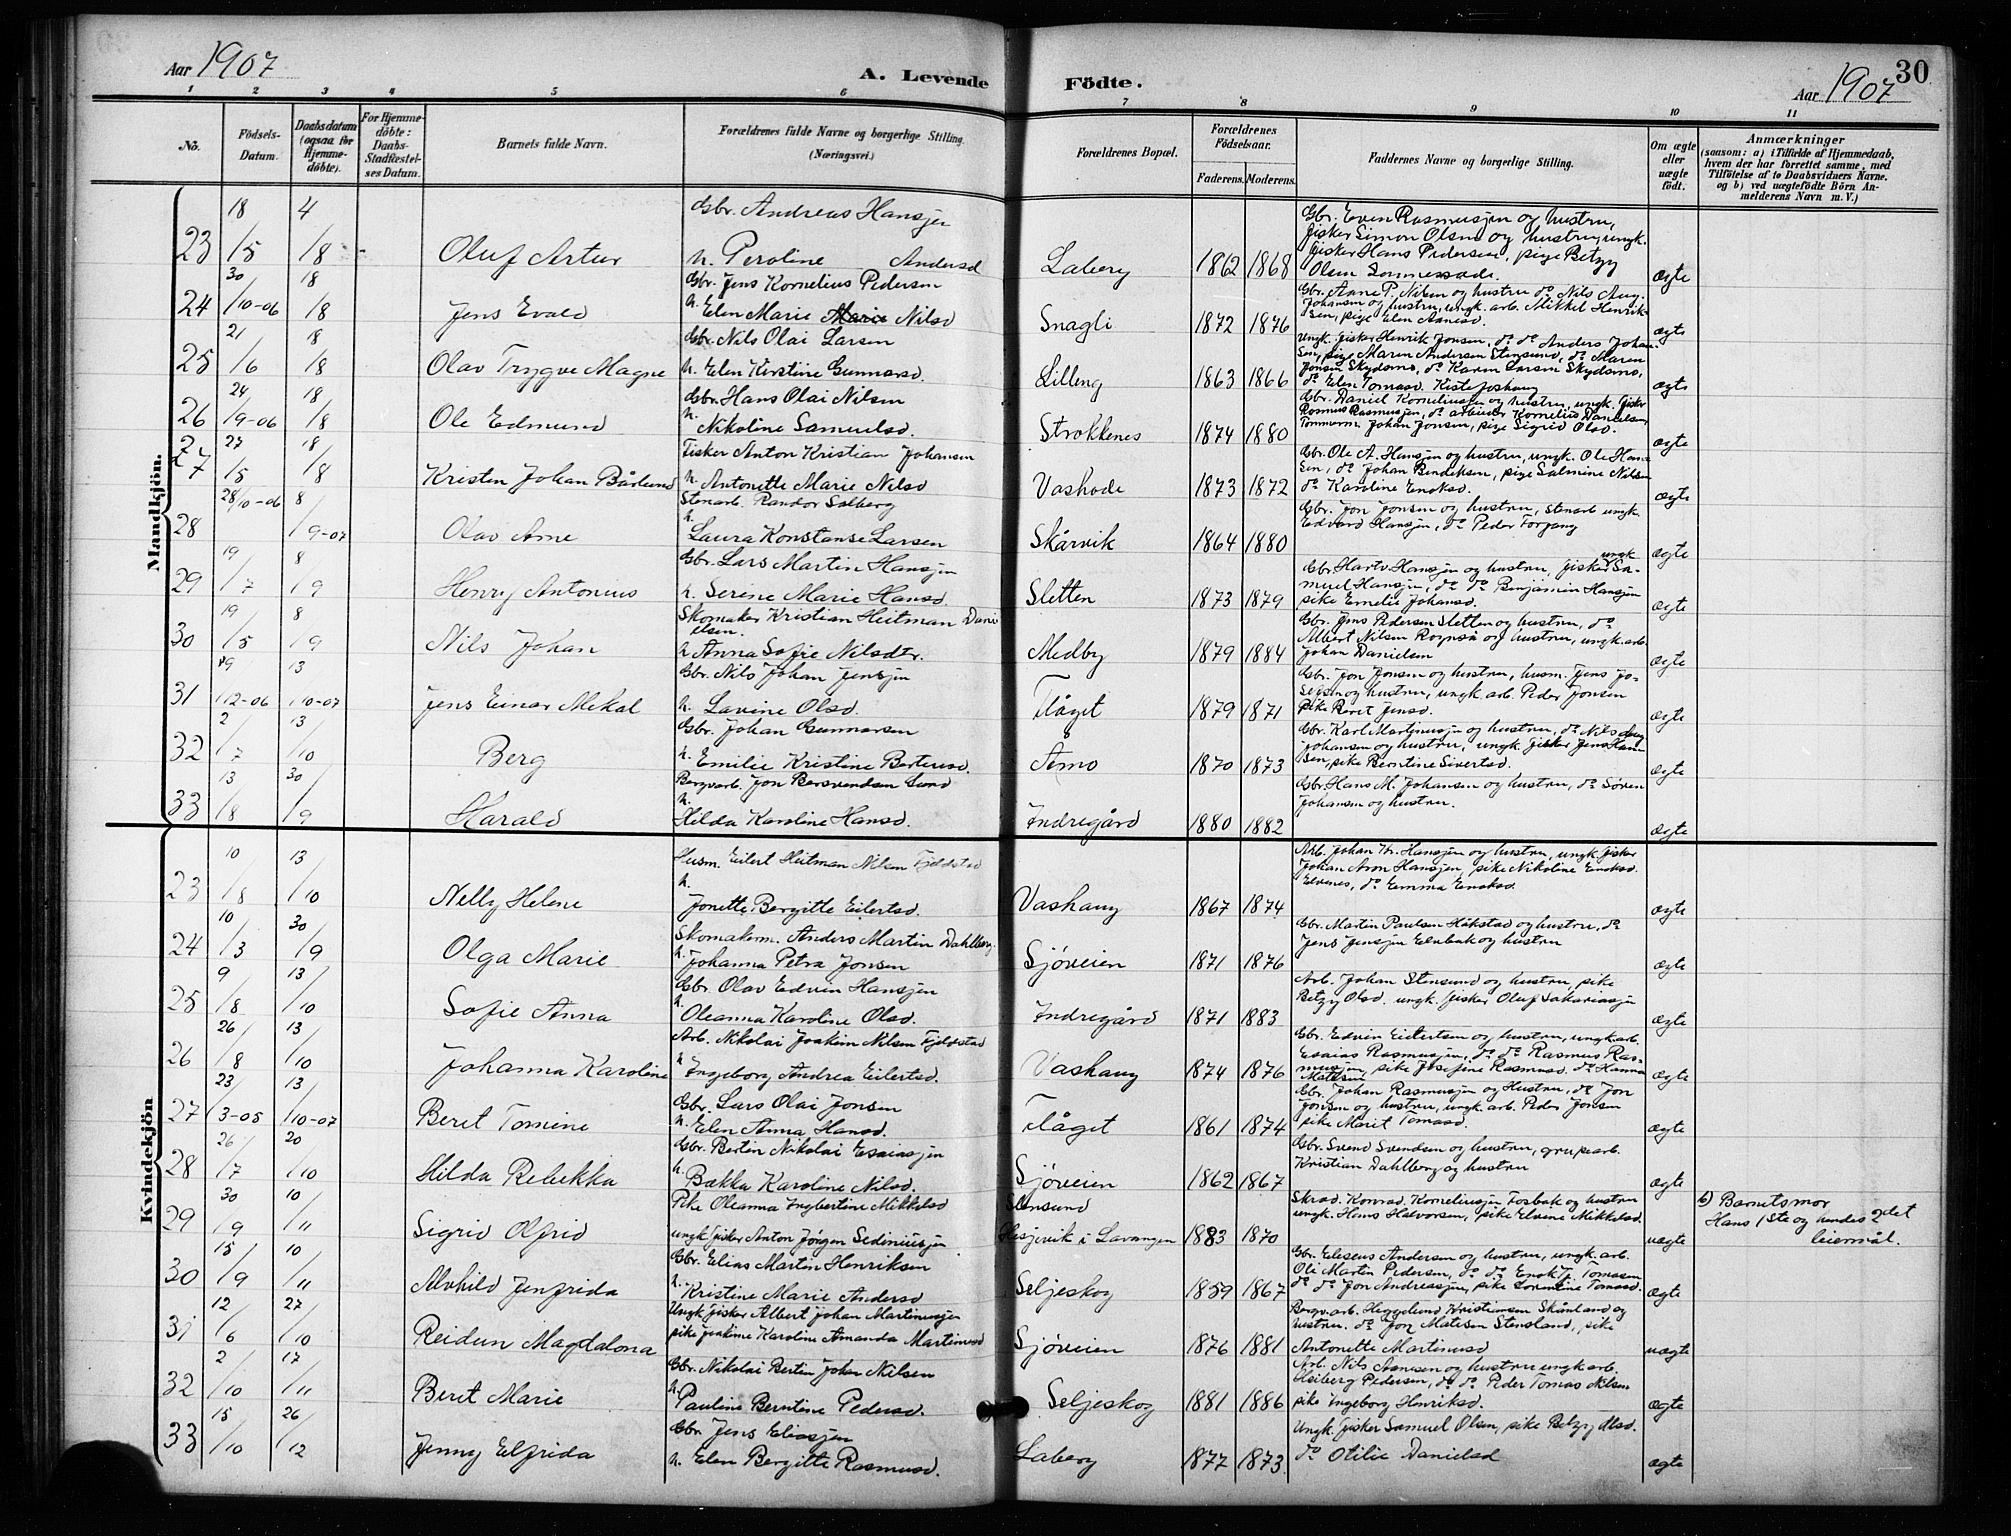 Aar 1907
A. Levende
Födte.
Aar 1907
30
1 2 3 4 5 6 7 8 9 10 11
No.
Födsels-
Datum.
Daabsdatum
(ogsaa for
Hjemme-
döbte).
For Hjemme-
döbte:
Daabs-
Stadfæstel-
ses Datum.
Barnets fulde Navn.
Forældrenes fulde Navne og borgerlige Stilling.
(Næringsvei.)
Forældrenes Bopæl.
Forældrenes
Födselsaar.
Faderens. Moderens.
Faddernes Navne og borgerlige Stilling.
Om ægte
eller
uægte
født.
Anmærkninger
(saasom: a) i Tilfælde af Hjemmedaab,
hvem der har forrettet samme, med
Tilföielse af to Daabsvidners Navne,
og b) ved uægtefödte Börn An-
melderens Navn m. V.)
Mandkjön.
Gbr. Andreas Hansjen
23 18/5 4/8 Oluf Artur h. Peroline Andersd Laberg 1862 1868 ægte
Gbr. Even Rasmussjen og hustru,
fisker Simon Olsen og hustru, ungk.
fisker Hans Pedersen, pige Betzy
Olsen
Gbr. Jens Kornelius Pedersen
24 30/10-06 18/8 Jens Evald h. Elen Marie Nilsd Snagli 1872 1876 ægte
Gbr. Aane P. Nilsen og hustru do Nils Aug.
Johansen og hustru, ungk. arb. Mikkel Henrik-
sen, pige Elen Aanesd.
Gbr. Nils Olai Larsen
25 21/6 18/8 Olav Trygve Magne h. Elen Kirstine Gunnarsd. Lilleng 1863 1866 ægte
Ungk. fisker Henrik Jonsen, do do Anders Johan-
sen, pige Maren Andersen Stensund, do Maren
Jonsen Skydsmo, do Karen Larsen Skydsmo,
do Elen Tomasd.
Gbr. Hans Olai Nilsen
26 24/9-06 18/8 Ole Edmund h. Nikoline Samuelsd. Strokkenes 1874 1880 ægte
Gbr. Daniel Korneliussen og hustru, ungk. fisker
Rasmus Rasmussjen, do arbeider Kornelius Danielsen,
Tømmerm. Johan Jonsen, pige Sigrid Olsd.
Fisker Anton Kristian Johansen
27 27/5 18/8 Kristen Johan Bårlund h. Antonette Marie Nilsd Vashode 1873 1872 ægte
Gbr. Ole A. Hansjen og hustru, ungk. Ole Han-
sen, do Johan Bendiksen, pige Salmine Nilsen
do Karoline Enoksd.
Stenarb. Randor Solberg
28 28/10-06 8/9-07 Olav Arne h. Laura Konstanse Larsen Skårvik 1864 1880 ægte
Gbr. Jon Jonsen og hustru, stenarb ungk.
Edvard Hansjen, do Peder Forgang
Gbr. Lars Martin Hansjen
29 19/7 8/9 Henry Antonius h. Serene Marie Hansd. Sletten 1873 1879 ægte
Gbr. Hartv. Hansjen og hustru, ungk fisker Sa-
muel Hansjen, do do Benjamin Hansjen
pike Emelie Johansd.
Skomaker Kristian Heitman Dani
elsen.
30 19/5 8/9 Nils Johan h Anna Sofie Nilsdtr. Medby 1879 1884 ægte
Gbr. Jens Pedersen Sletten og hustru, do
Albert Nilsen Rognså og hustru, ungk. arb.
Johan Danielsen
Gbr. Nils Johan Jensjen
31 /12-06 13/10-07 Jens Einar Mekal h. Lavine Olsd. Flåget 1879 1871 ægte
Gbr. Jon Jonsen og hustru, husm. Jens Jo-
sefsen og hustru, ungk arb. Peder Jonsen
Pike Beret Jensd.
Gbr. Johan Gunnarsen
32 2/7 13/10 Berg h. Emilie Kristine Berteusd. Åmo 1870 1873 ægte
Gbr. Karl Martinussjen og hustru, do Nils Aug
Johansen og hustru, ungk. fisker Jens Han-
sen, pike Berntine Sivertsd.
Bergvarb. Jon Bersvendsen Lund
33 13/8 30/9 Harald h. Hilda Karoline Hansd. Indregård 1880 1882 ægte
Gbr. Hans M. Johansen og hustru, do Søren
Johansen og hustru.
Kvindekjön
Husm. Eilert Heitman Nilsen Fjeldstad
23 10/8 13/10 Nelly Helene h. Jonette Bergitte Eilertsd. Vashaug 1867 1874 ægte
Arb. Johan Kr. Hansjen og hustru, ungk. fisker
Johan Aron Hansjen, pike Nikoline Enoksd.
Elvenes, do Emma Enoksd.
Skomakerm. Anders Martin Dahlberg.
24 10/3 30/9 Olga Marie h. Johanna Petra Jonsen Sjøveien 1871 1876 ægte
Gbr. Martin Paulsen Håkstad og hustru, do
Jens Jensjen Elvebak og hustru
Gbr. Olav Edvin Hansjen
25 9/8 13/10 Sofie Anna h. Oleanna Karoline Olsd. Indregård 1871 1883 ægte
Arb. Johan Stensund og hustru, pike
Betzy Olsd. ungk. fisker Oluf Sakariassjen
Arb. Nikolai Joakim Nilsen Fjeldstad
26 26/8 13/10 Johanna Karoline h Ingeborg Andrea Eilertsd. Vashaug 1874 1876 ægte
Gbr. Edvin Eilertsen og hustru, ungk. arb.
Esaias Rasmussjen, do do Rasmus Ras-
mussjen, pike Josefine Rasmusd. do Hanna
Matisen
Gbr. Lars Olai Jonsen
27 23/3-05 13/10-07 Beret Tomine h. Elen Anna Hansd. Flåget 1861 1874 ægte
Gbr. Johan Rasmussjen og Hustru, do Jon
Jonsen og hustru, ungk. arb. Peder Jonsen
pike Marit Tomasd.
Gbr. Bertin Nikolai Esaiassjen
28 26/7 20/10 Hilda Rebekka h. Bækka Karoline Nilsd. Sjøveien 1862 1867 ægte
Gbr. Svend Svendsen og hustru, grupearb.
Kristian Dahlberg og hustru
Pike Oleanna Ingbertine Mikkelsd Stensund
29 30/9 10/11 Sigrid Olfrid ungk fisker Anton Jørgen Sediniussjen Hesjevik i Lavangen 1883 1870 uægte
Skræd. Konrad Korneliussjen Fosbak og hustru
ungk. Hans Halvorsen, pike Elvine Mikkelsd.
b) Barnets mor
Hans 1ste og hendes 2det
leiermål.
Gbr. Elias Martin Henriksen
30 15/9 10/11 Alvhild Jenfrida h. Kristine Marie Andersd Seljeskog 1859 1867 ægte
Gbr. Eliseus Andersen og hustru, ungk. arb.
Ole Martin Pedersen, do do Enok J. Tomasen
do do Jon Andreassjen, pike Lorentine Tomasd.
Ungk fisker Albert Johan Martinussjen
31 12/6 27/10 Reidun Magdalona pike Joakime Karoline Amanda Martinusd Sjøveien 1876 1881 uægte
Bergv. arb. Heggelund Kristiansen Skånland og
hustru. do Jon Matisen Stensland, pike
Antonette Martinusd
Gbr. Nikolai Bertin Johan Nilsen
32 2/10 17/11 Berit Marie h. Pauline Berntine Pedersd. Seljeskog 1881 1886 ægte
Arb. Nils Aanesen og hustru ungk arb.
Heiberg Pedersen, do do Peder Tomas Nilsen
pike Ingeborg Henriksd.
Gbr. Jens Eliasjen
33 15/10 26/12 Jenny Elfrida h. Elen Bergitte Rasmusd. Laberg 1877 1873 ægte
Ungk. fisker Samuel Olsen, pike Betzy Olsd.
do Otilie Danielsd